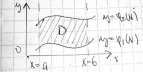 y
y=φ₂(x)
D
y=φ₁(x)
0
x=a
x=b
x